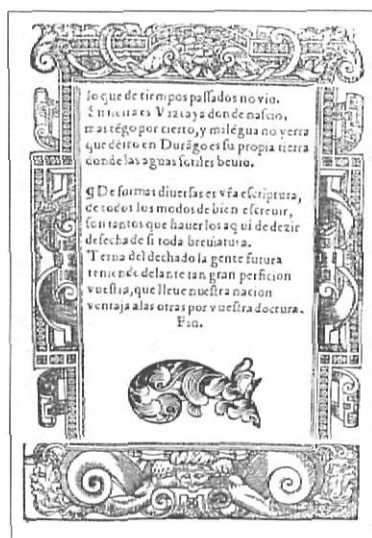 lo que de tiempos passados no vio.
Su tierra es Vizcaya donde nascio,
mas tẽgo por cierto, y mi lẽgua no yerra
que dẽtro en Durãgo es su propia tierra
donde las aguas sotiles beuio.
¶ De formas diuersas es vr̃a escriptura,
de todos los modos de bien escreuir,
son tantos que hauer los aqui de dezir
desecha de si toda breuiatura.
Terna del dechado la gente futura
teniendo delante tan gran perficion
vuestra, que lleue nuestra nacion
ventaja a las otras por vuestra doctura.
Fin.